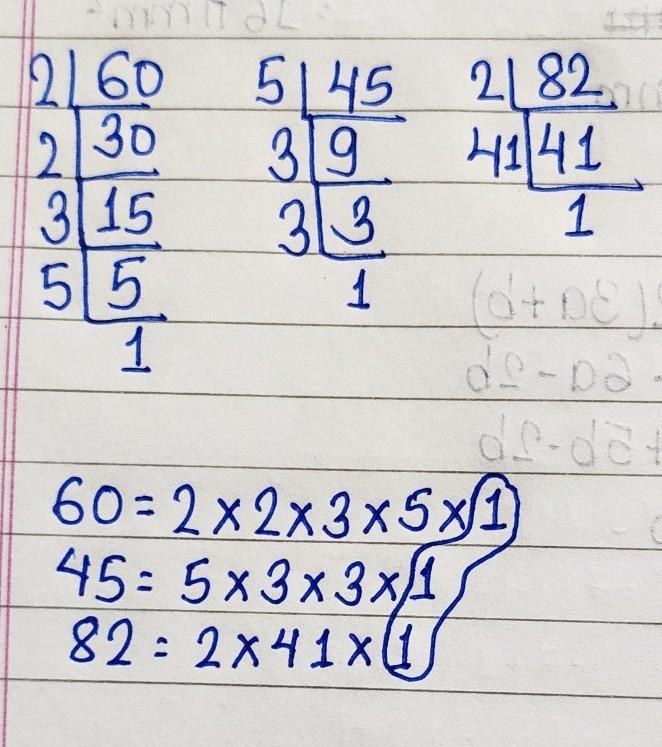 2|60 5|45 2|82
2|30 3|9 41|41
3|15 3|3 1
5|5 1
1
60 = 2 × 2 × 3 × 5 × 1
45 = 5 × 3 × 3 × 1
82 = 2 × 41 × 1
(3a+b)
6a-2b
+5b-2b